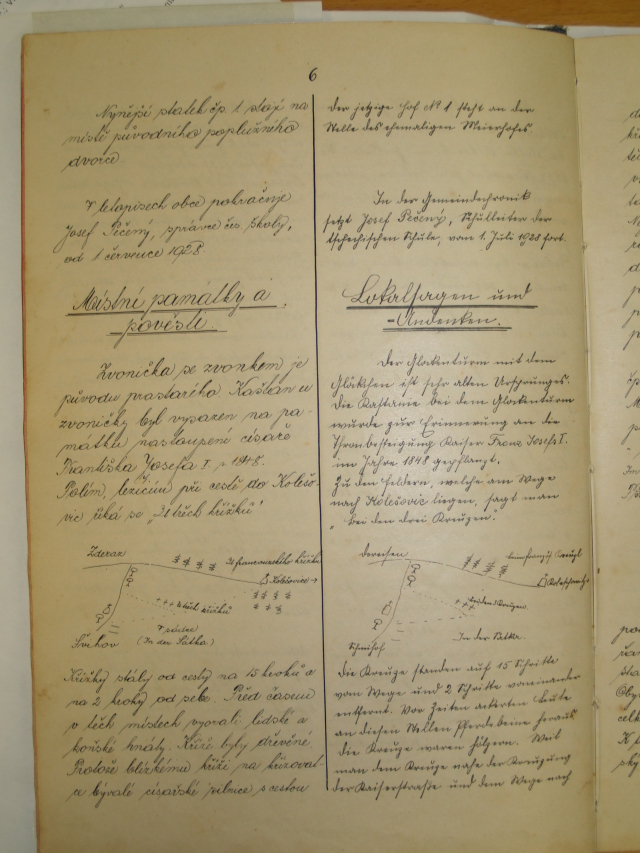 6
Nynější statek čp. 1 stojí na
místě původního poplužního
dvorce
V letopisech obce pokračuje
Josef Pečený, správce čes. školy,
od 1 července 1928.
Místní památky a
pověsti.
Zvonička se zvonkem je
původu prastarého. Kaštan u
zvoničky byl vysazen na pa-
mátku nastoupení císaře
Františka Josefa I. r. 1848.
Polím, ležícím při cestě do Kolešo-
vic říká se „U třech křížků"
Zderaz
U francouzského křížku
Kolešovice
U třech křížků
V
Švihov
(In der Sutka)
Křížky stály od cesty na 15 kroků a
na 2 kroky od sebe. Před časem
v těch místech vyorali lidské a
koňské hnáty. Kříže byly dřevěné.
Protože blízkému kříži na křižovat-
a bývalé císařské silnice s cestou
Der jetzige Hof № 1 steht an der
Stelle des ehemaligen Meierhofes
In der Gemeindechronik
setzt Josef Pečený, Schulleiter der
tschechischen Schule, vom 1. Juli 1928 fort.
Lokalsagen und
-Andenken.
Der Glockenturm mit dem
Glöckchen ist sehr alten Ursprunges.
Die Kastanie bei dem Glockenturm
wurde zur Erinnerung an die
Thronbesteigung Kaiser Franz Josefs I.
im Jahre 1848 gepflanzt.
Zu den Feldern, welche am Wege
nach Kolešovic liegen, sagt man
„bei den drei Kreuzen."
Deresen
Koleschowitz
bei den 3 Kreuzen
In der Sutka
Die Kreuze standen auf 15 Schritte
vom Wege und 2 Schritte voneinander
entfernt. Vor Zeiten ackerten Leute
an diesen Stellen Pferdebeine heraus
Die Kreuze waren hölzern. Weil
man dem Kreuze nahe der Kreuzung
der Kaiserstraße und dem Wege nach